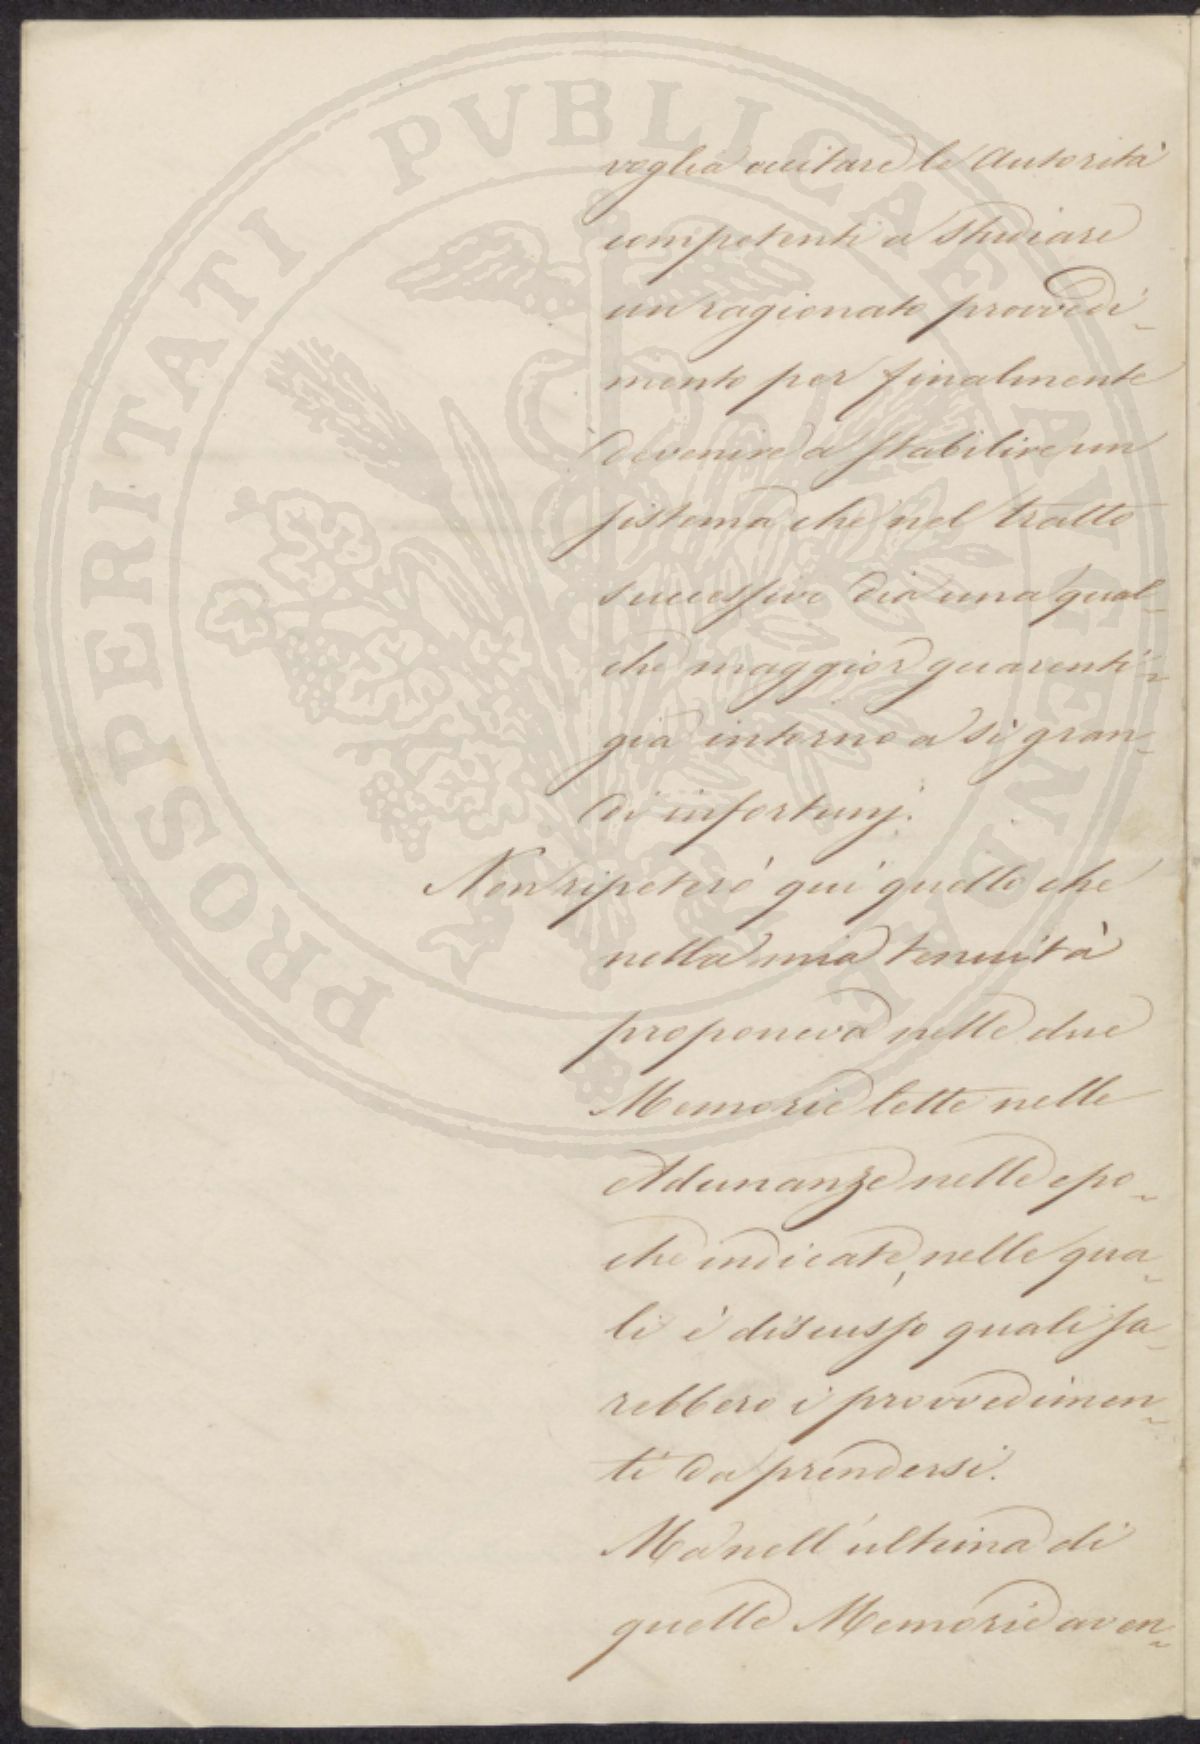 voglia eccitare le Autorità
competenti a studiare
un ragionato provvedi-
mento per finalmente
devenire a stabilire un
sistema che nel tratto
successivo dia una qual-
che maggior guarenti-
gia intorno a sì gran-
di infortunj.
Non ripeterò quì quello che
nella mia tenuità
proponeva nelle due
Memorie lette nelle
Adunanze nelle epo-
che indicate, nelle qua-
li è discusso quali sa-
rebbero i provvedimen-
ti da prendersi.
Ma nell'ultima di
quelle Memorie aven-
PROSPERITATI PVBLICAE AVGENDAE